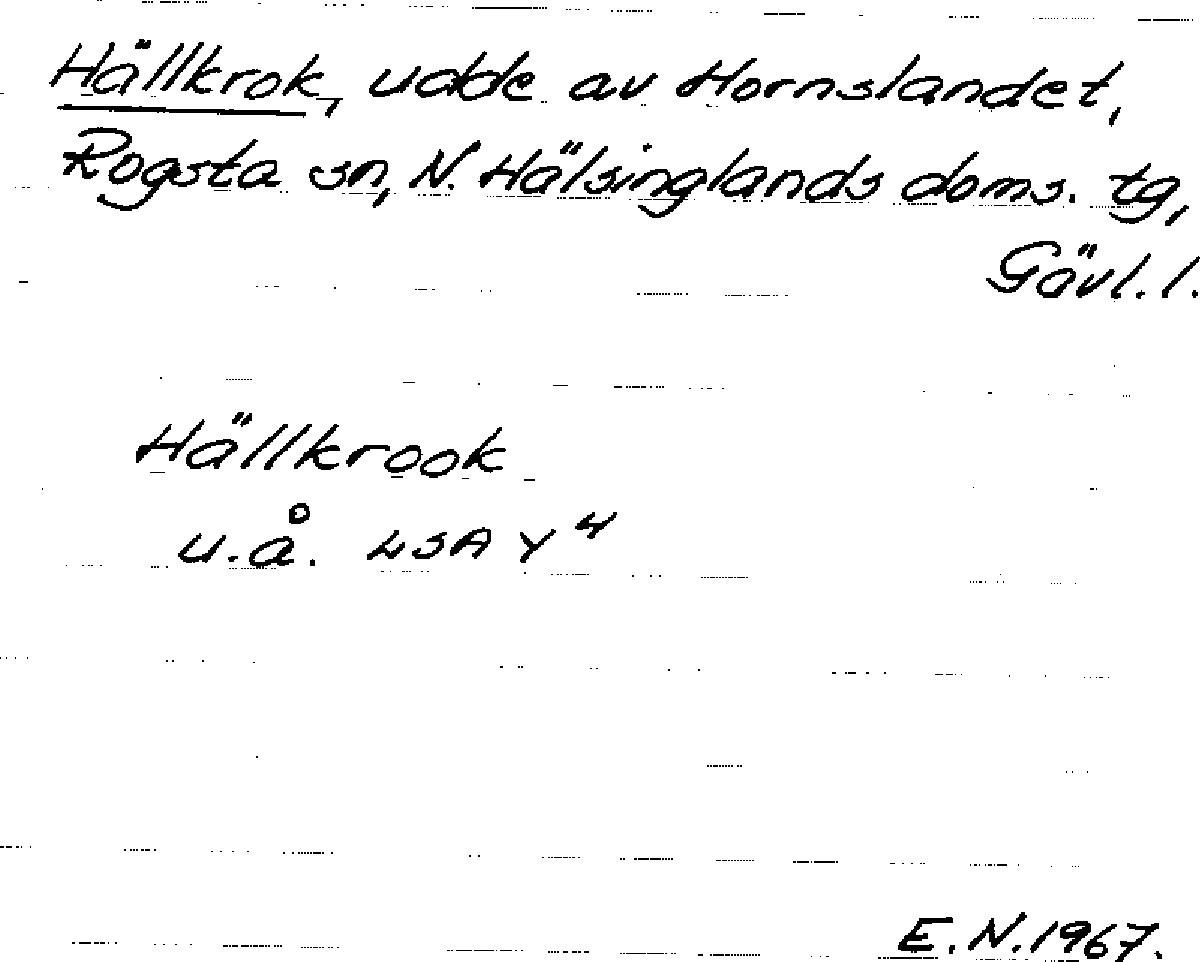 Hällkrok, udde av Hornslandet,
Rogsta sn, N. Hälsinglands doms. tg,
Gävl. l.
Hällkrook
u.å. LSA Y⁴
E.N. 1967.